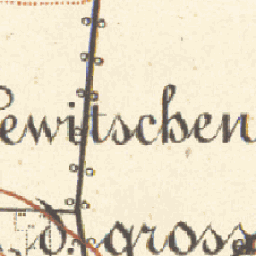 ewitschen
d. gross